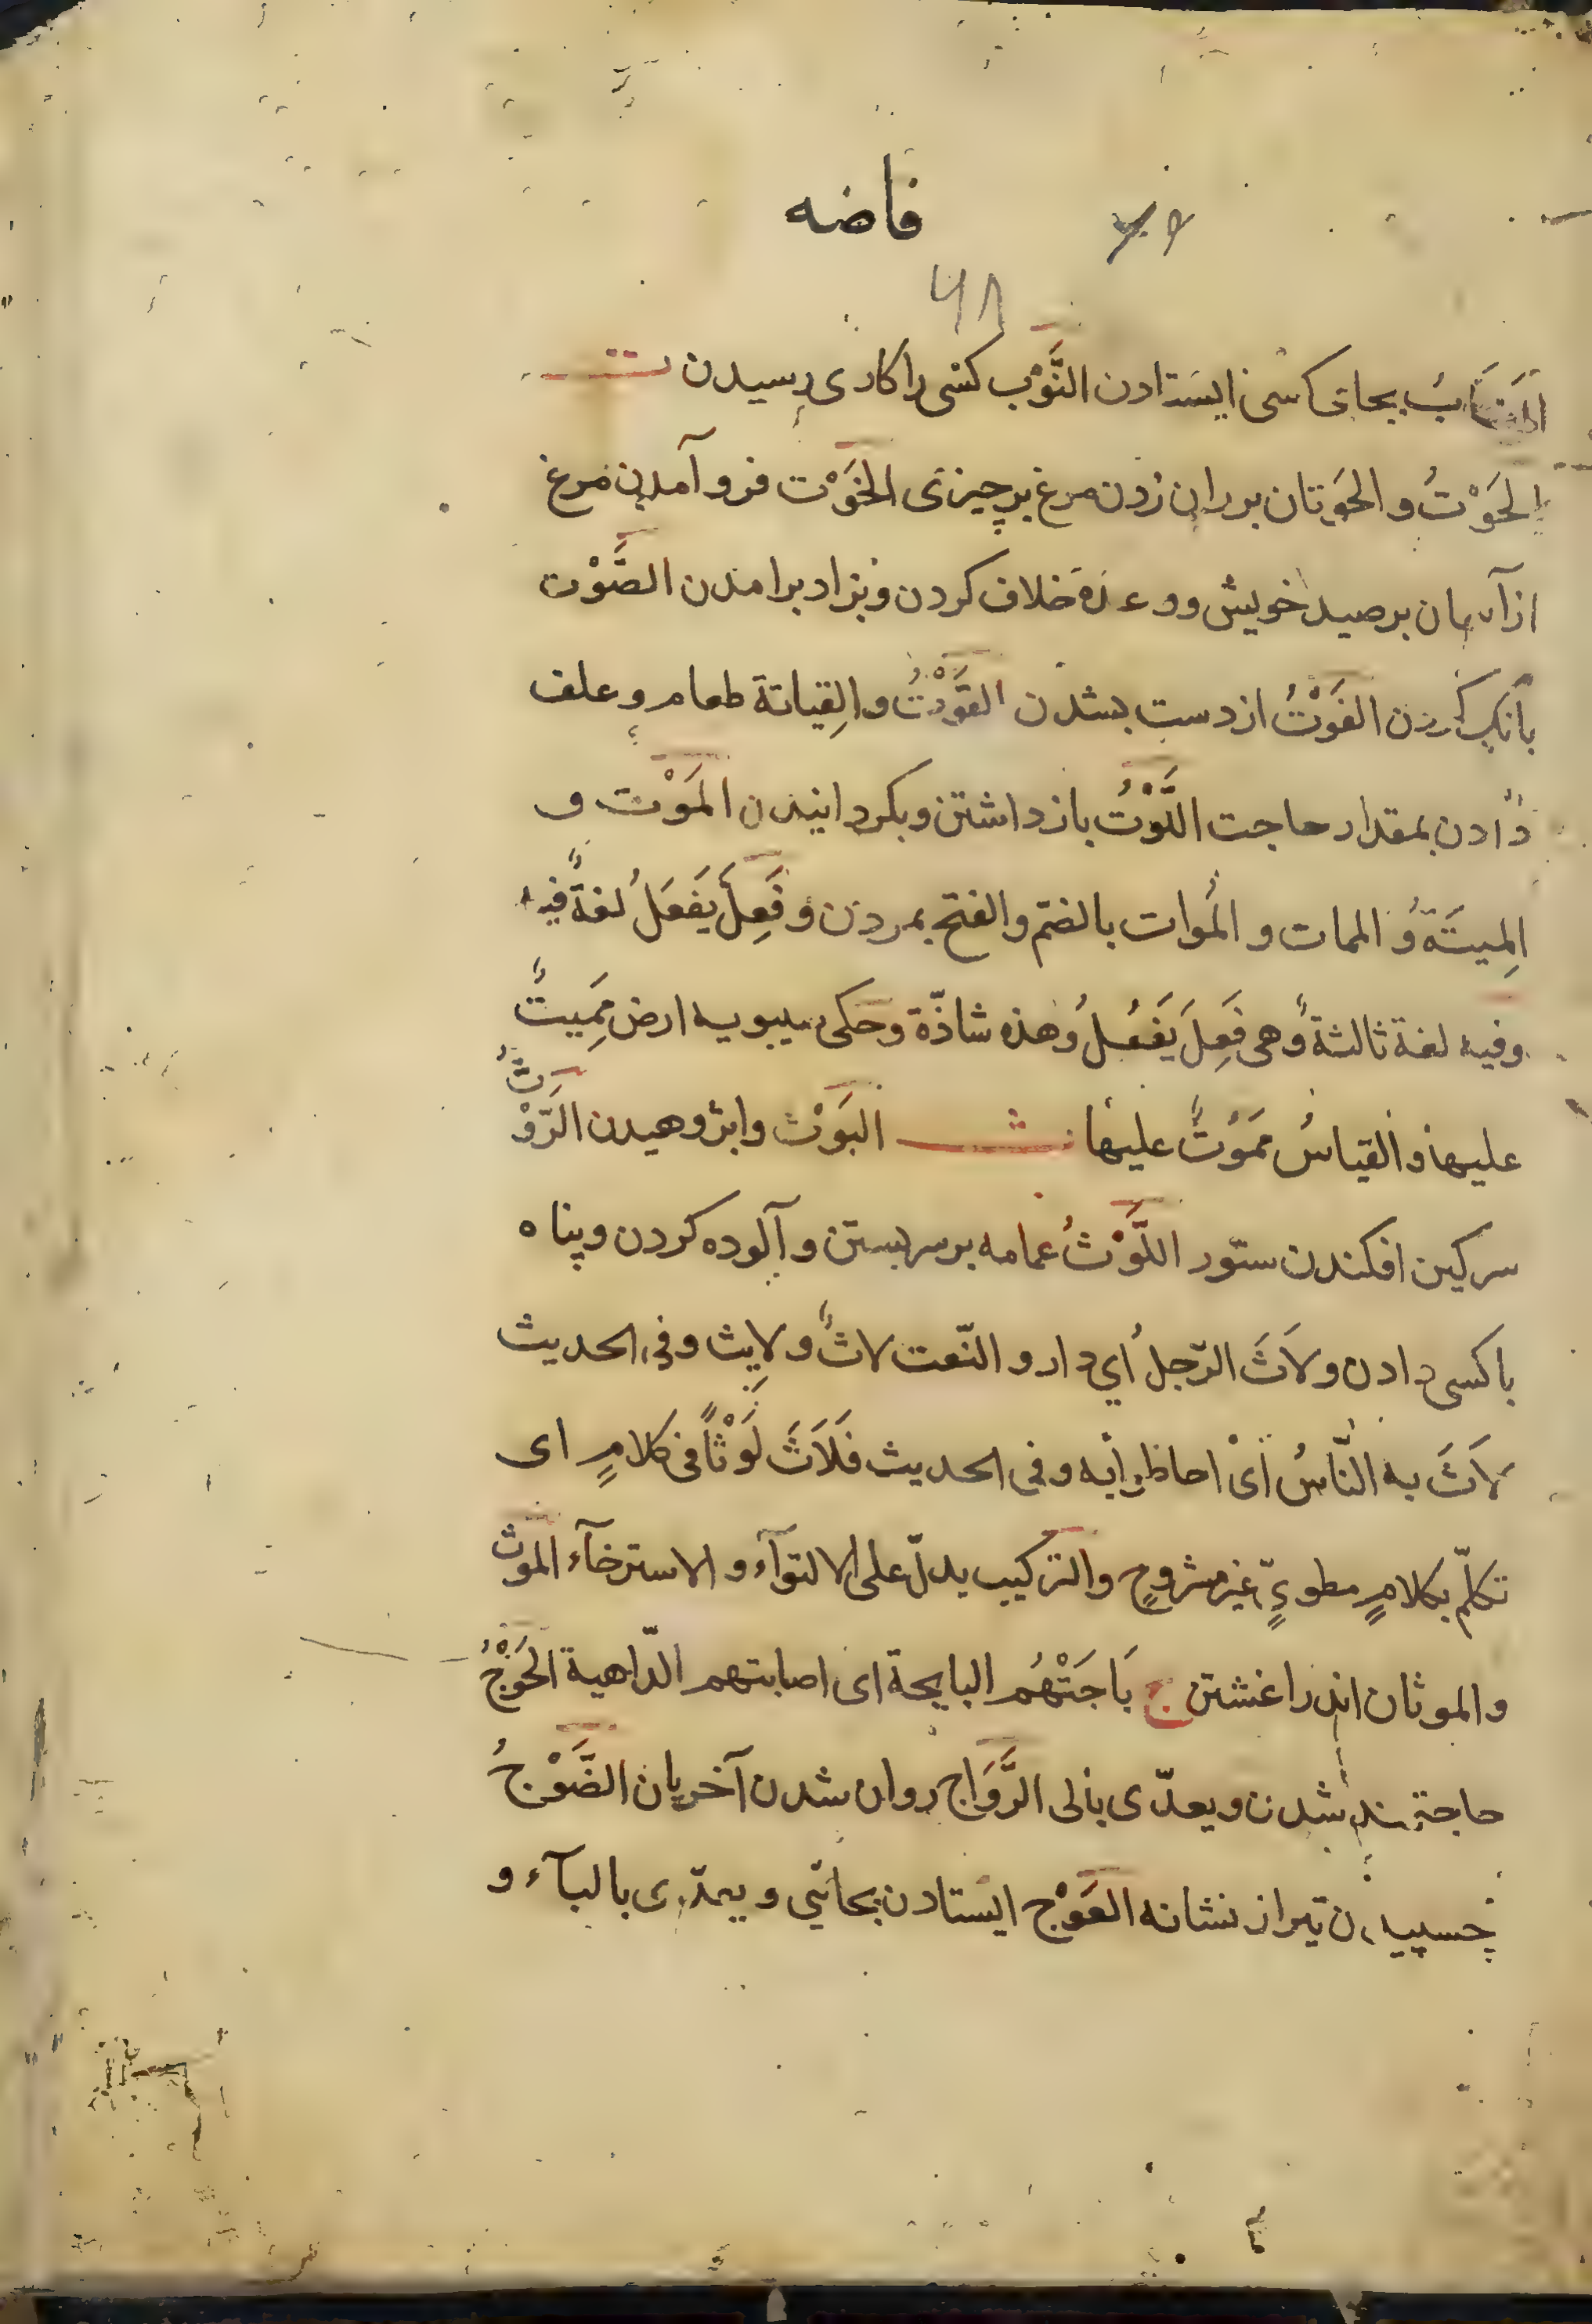 فاضه
۶۸
المَنَابُ بجای کسی ایستادن النَّوْب کسی را کاری رسیدن ت
الحَوْتُ و الحَوَتان بر پران زدن مرغ بر چیزی الخَوْت فرو آمدن مرغ
از آسمان بر صید خویش و وعده خلاف کردن و بزاد برامدن الصَّوْت
بانک کردن الفَوْتُ از دست بشدن القَوْتُ و القِیاتة طعام و علف
دادن بمقدار حاجت اللَّوْتُ باز داشتن و بکردانیدن المَوْت و
المِیتَةُ و الممات و المُوات بالضم و الفتح بمردن و فَعِلَ یَفْعَلُ لغةٌ فیه
و فیه لغة ثالثةٌ و هی فَعِلَ یَفْعُلُ و هذه شاذّة و حکی سیبویه ارض مَمِیتٌ
علیها و القیاسُ مَمُوتٌ علیها ث البَوْث وابژوهیدن الرَّوْثُ
سرکین افکندن ستور اللَّوْثُ عمامه بر سر بستن و آلوده کردن و پناه
با کسی دادن و لاَثَ الرّجلُ أي دار و النّعت لاثٌ و لایِث و فی الحدیث
لاَثَ به النّاسُ أیْ احاط به و فی الحدیث فَلاَثَ لَوْثًا فی کلامٍ ای
تکلّم بکلامٍ مطویٍّ غیر مشروحٍ و الترکیب یدلّ علی الالتوآء و الاسترخآء الموث
و الموثان اندر اغشتن ج بَاجَتْهُم البایجة ای اصابتهم الدّاهیة الحَوْجُ
حاجتمند شدن و یعدّی بالی الرَّوَاج روان شدن آخریان الضَّوْجُ
چسپیدن تیر از نشانه العَوْج ایستادن بجائی و یعدّی بالبآء و